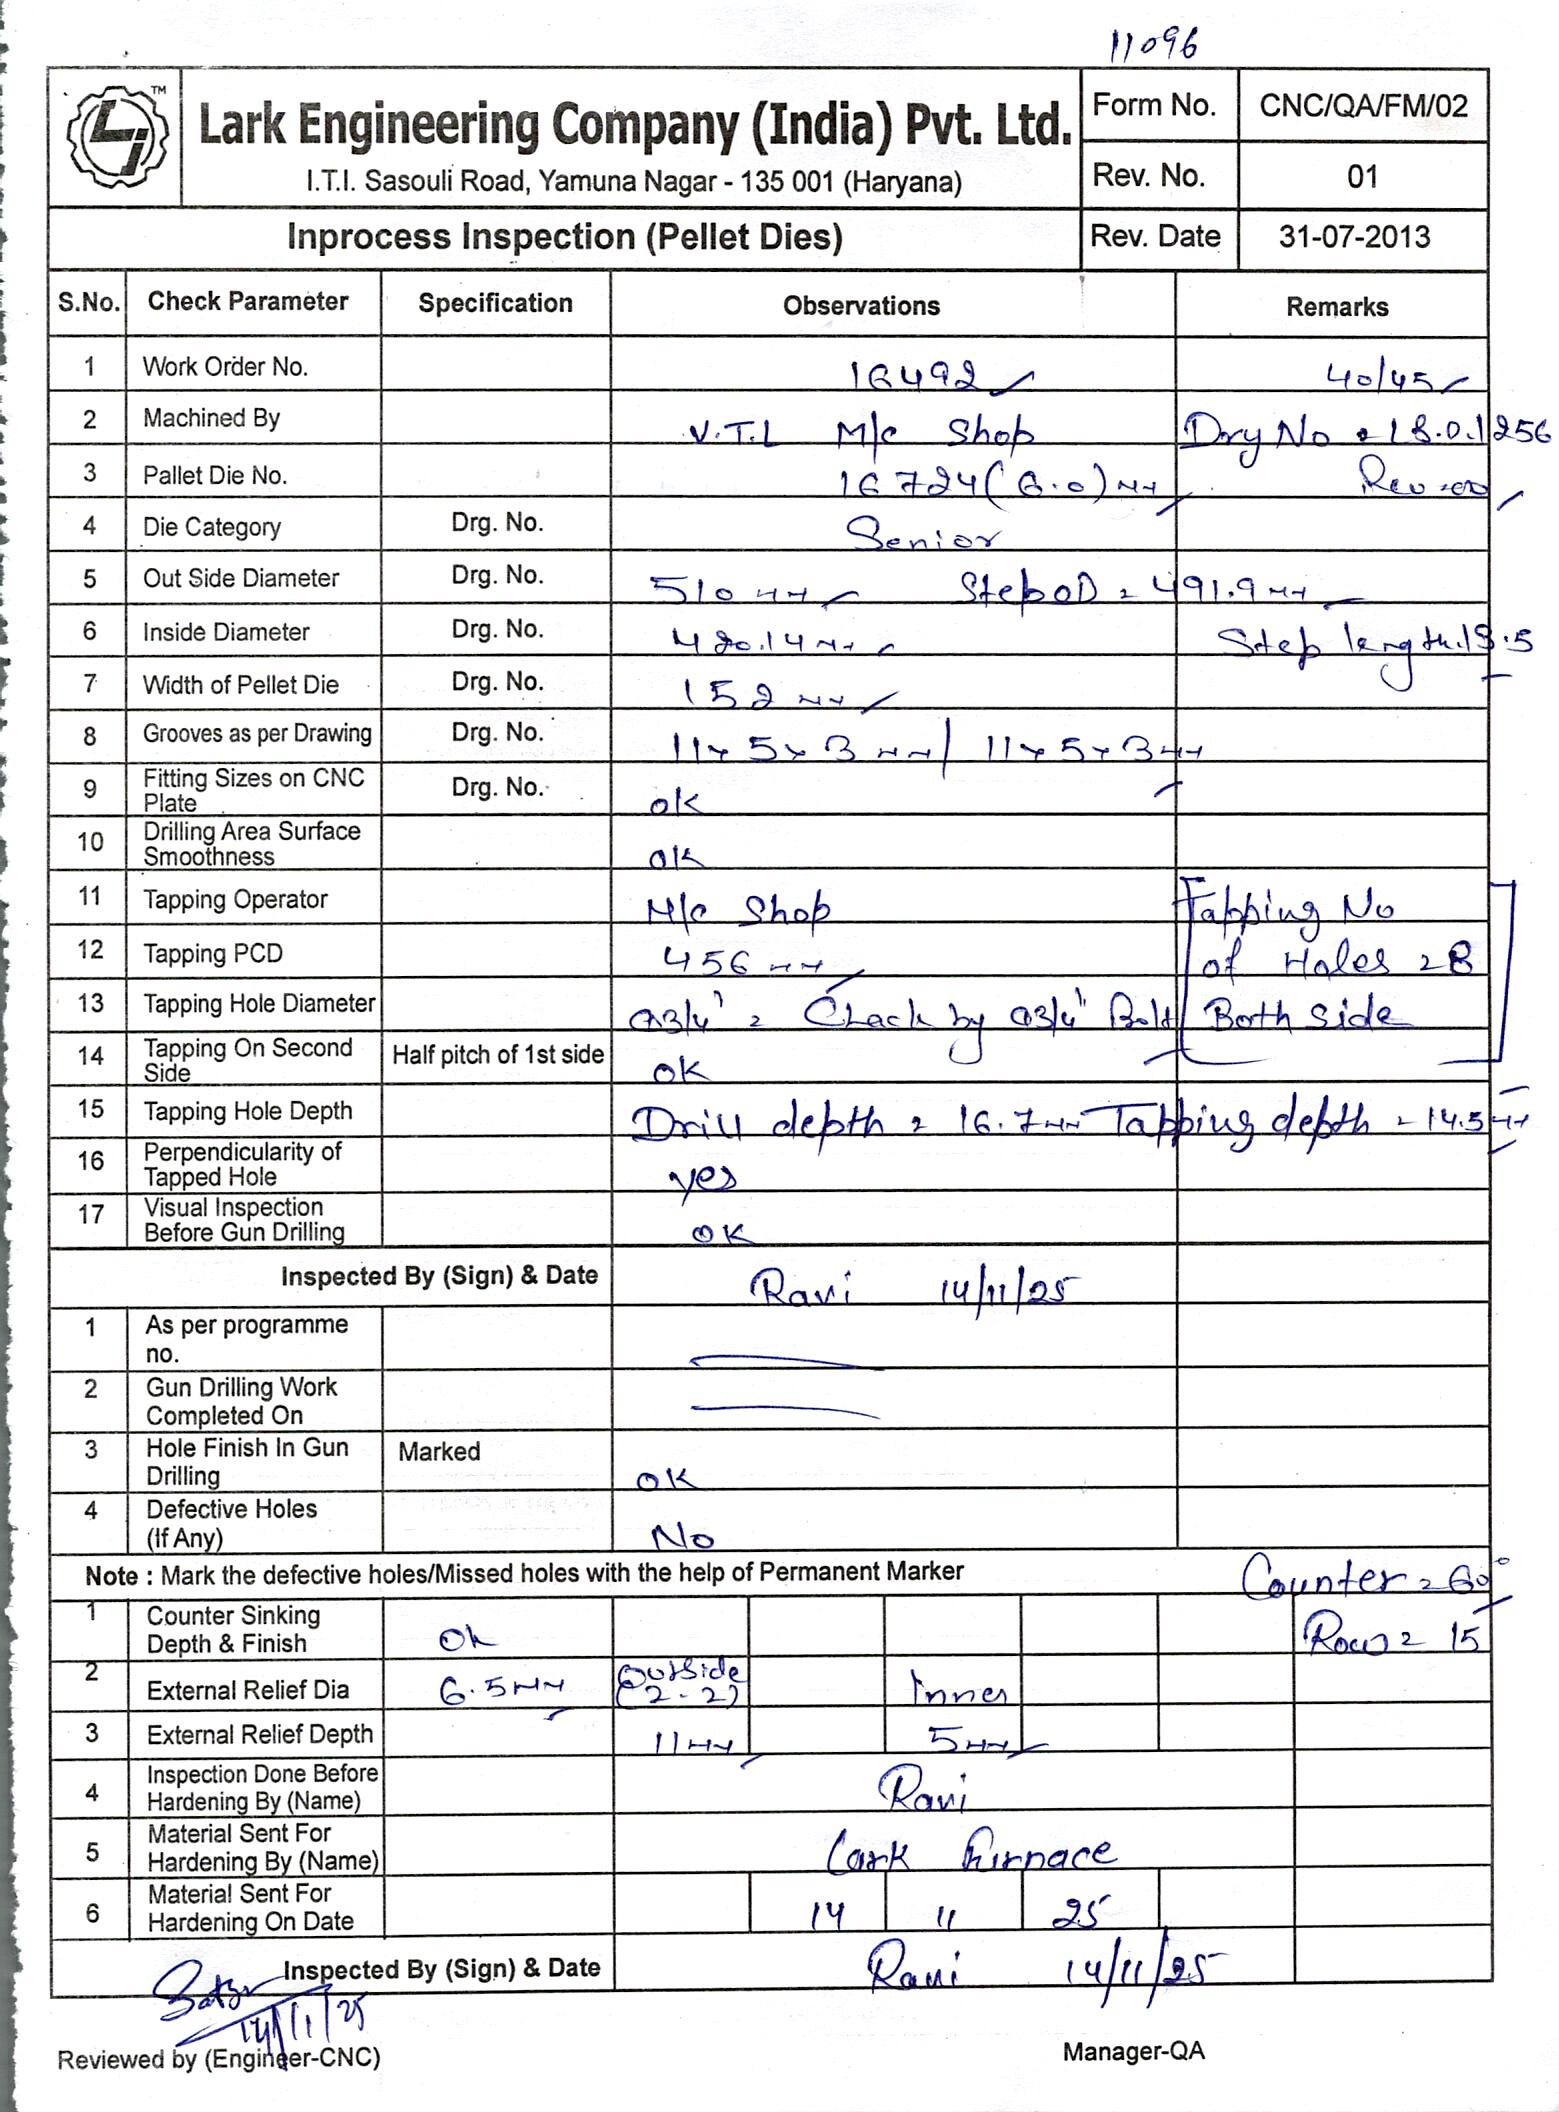 11096
TM
Lark Engineering Company (India) Pvt. Ltd.
I.T.I. Sasouli Road, Yamuna Nagar - 135 001 (Haryana)
Form No. CNC/QA/FM/02
Rev. No. 01
Inprocess Inspection (Pellet Dies) Rev. Date 31-07-2013
S.No. Check Parameter Specification Observations Remarks
1 Work Order No. 16492 40/45
2 Machined By V.T.L M/c Shop Dry No 18.0.1256
3 Pallet Die No. 16724 (6.0) Rev
4 Die Category Drg. No. Senior
5 Out Side Diameter Drg. No. 510 mm Step OD = 491.9 mm
6 Inside Diameter Drg. No. 420.14 mm Step length
7 Width of Pellet Die Drg. No. 152 mm
8 Grooves as per Drawing Drg. No. 11 x 5 x 3 mm / 11 x 5 x 3 mm
9 Fitting Sizes on CNC Plate Drg. No. ok
10 Drilling Area Surface Smoothness ok
11 Tapping Operator M/c Shop Tapping No
12 Tapping PCD 456 mm of Holes = 8
13 Tapping Hole Diameter 3/4" = Check by 3/4" Bolt Both Side
14 Tapping On Second Side Half pitch of 1st side OK
15 Tapping Hole Depth Drill depth = 16.7 mm Tapping depth = 14.5 mm
16 Perpendicularity of Tapped Hole yes
17 Visual Inspection Before Gun Drilling OK
Inspected By (Sign) & Date Ravi 14/11/25
1 As per programme no.
2 Gun Drilling Work Completed On
3 Hole Finish In Gun Drilling Marked OK
4 Defective Holes (If Any) No
Note : Mark the defective holes/Missed holes with the help of Permanent Marker Counter = 60°
1 Counter Sinking Depth & Finish Ok Row = 15
2 External Relief Dia 6.5 mm Outside (2-2) Inner
3 External Relief Depth 11 mm 5 mm
4 Inspection Done Before Hardening By (Name) Ravi
5 Material Sent For Hardening By (Name) Lark Furnace
6 Material Sent For Hardening On Date 14 11 25
Inspected By (Sign) & Date Ravi 14/11/25
14/11/25
Reviewed by (Engineer-CNC) Manager-QA